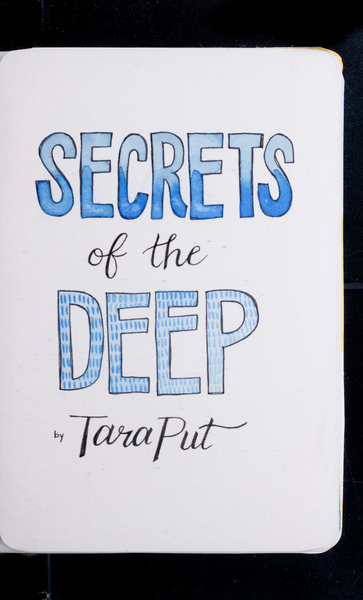 SECRETS
of the
DEEP
by Tara Put